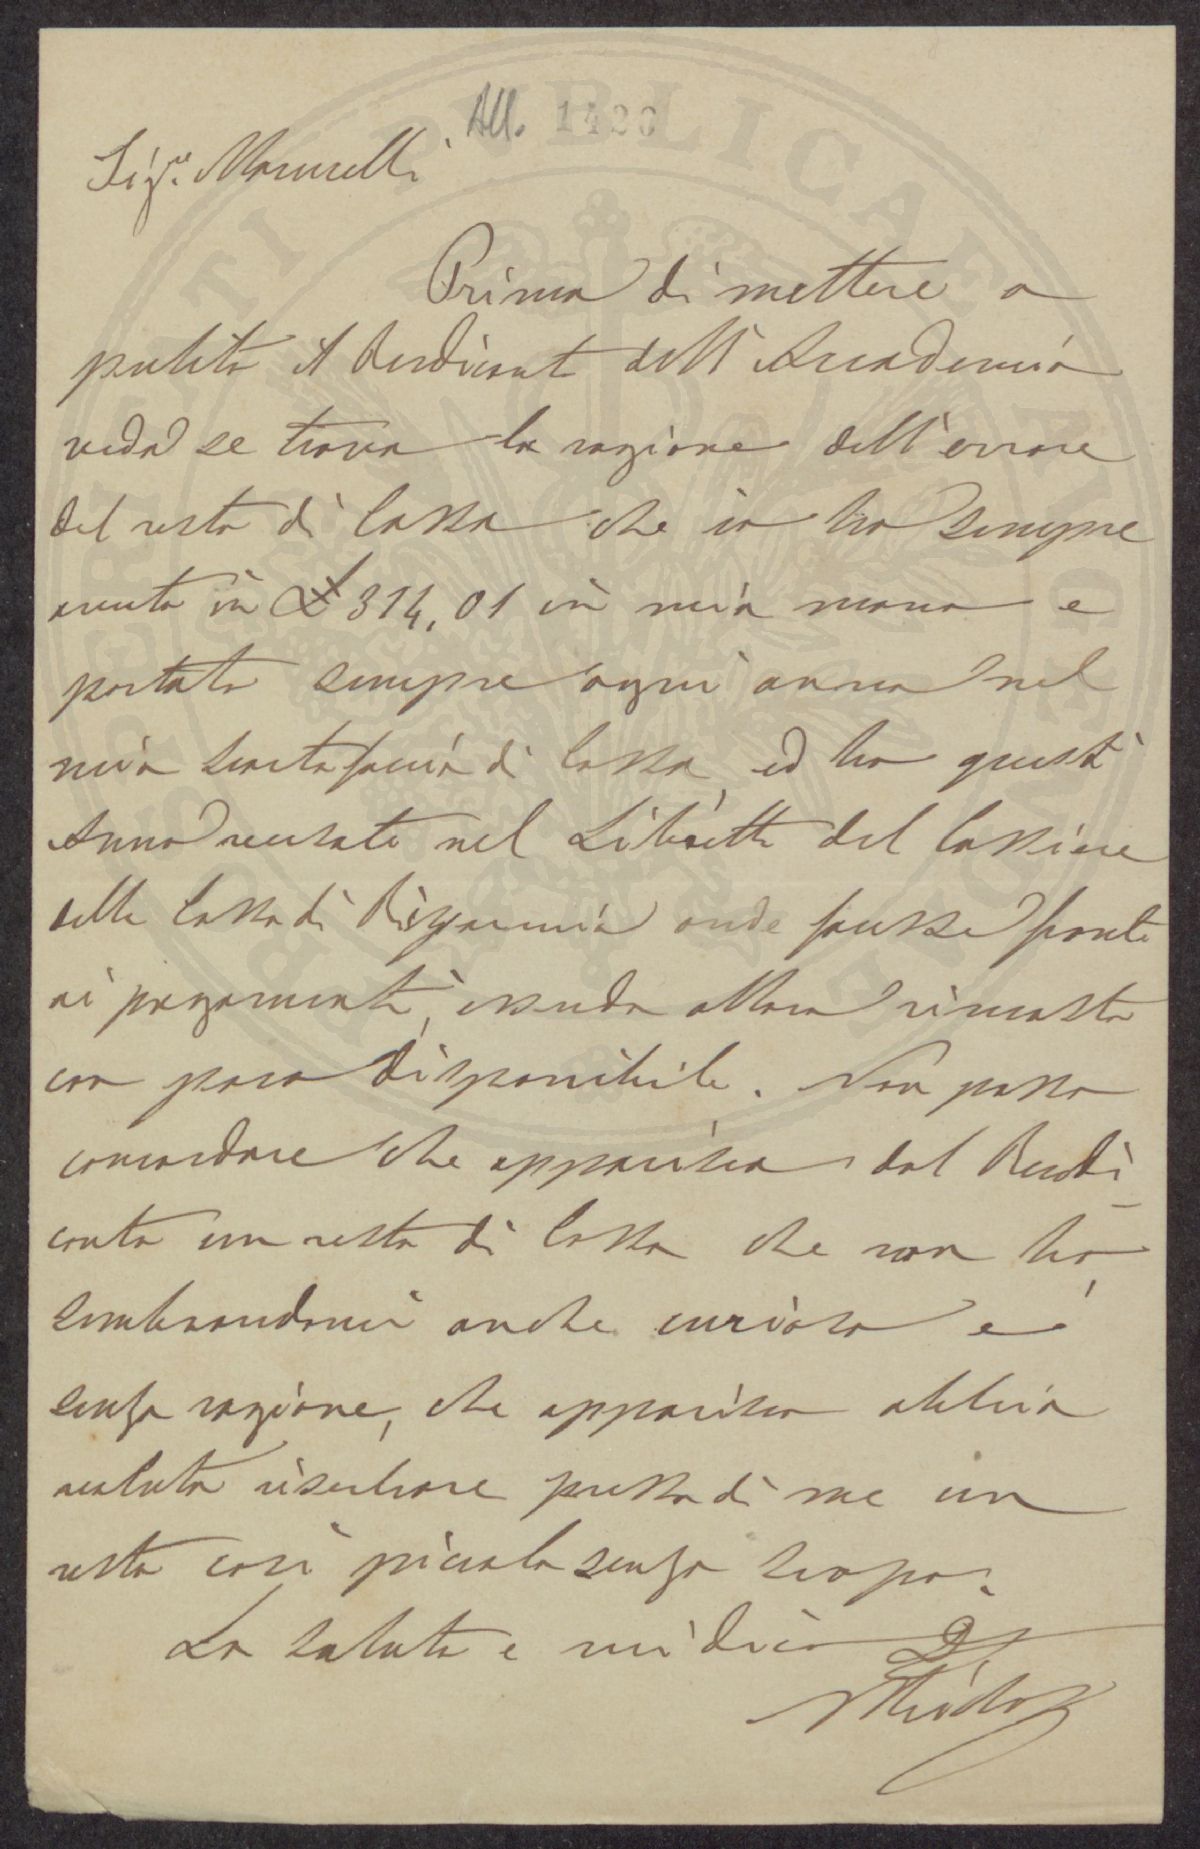 All. 1426
Sigr. Marinelli
Prima di mettere a
pulito il Rendiconto dell'Accademia
veda se trova la ragione dell'errore
del resto di Cassa che io ho sempre
avuto in £ 314,01 in mia mano e
portato sempre ogni anno nel
mio scartafaccio di Cassa, ed ho questo
Anno versato nel Libretto del Cassiere
alla Cassa di Risparmio onde facesse fronte
ai pagamenti, essendo allora rimasto
con poco disponibile. Non posso
concordare che apparisca dal Rendi-
conto un resto di Cassa che non ho,
sembrandomi anche curioso e
senza ragione, che apparisca abbia
voluto riserbare presso di me un
resto così piccolo senza scopo.
La saluto e mi dico